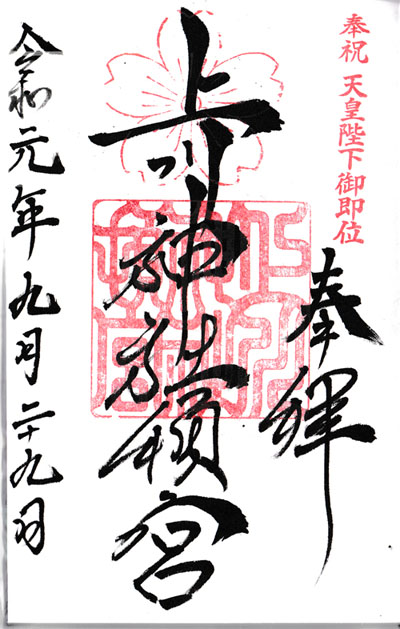 奉祝 天皇陛下御即位
奉拝
上川神社頓宮
令和元年九月二十九日